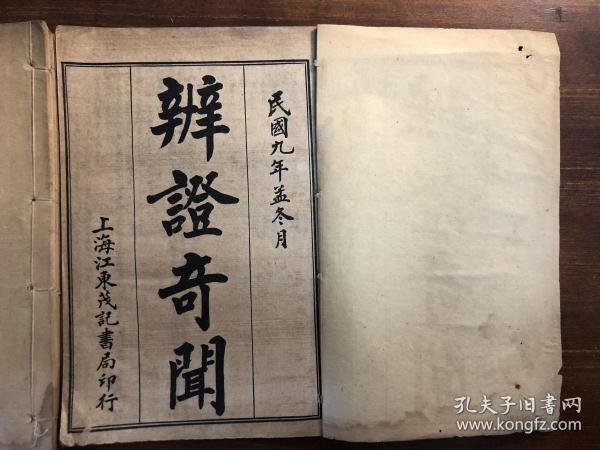 民國九年孟冬月
辨證奇聞
上海江東茂記書局印行
孔夫子旧书网
www.kongfz.com